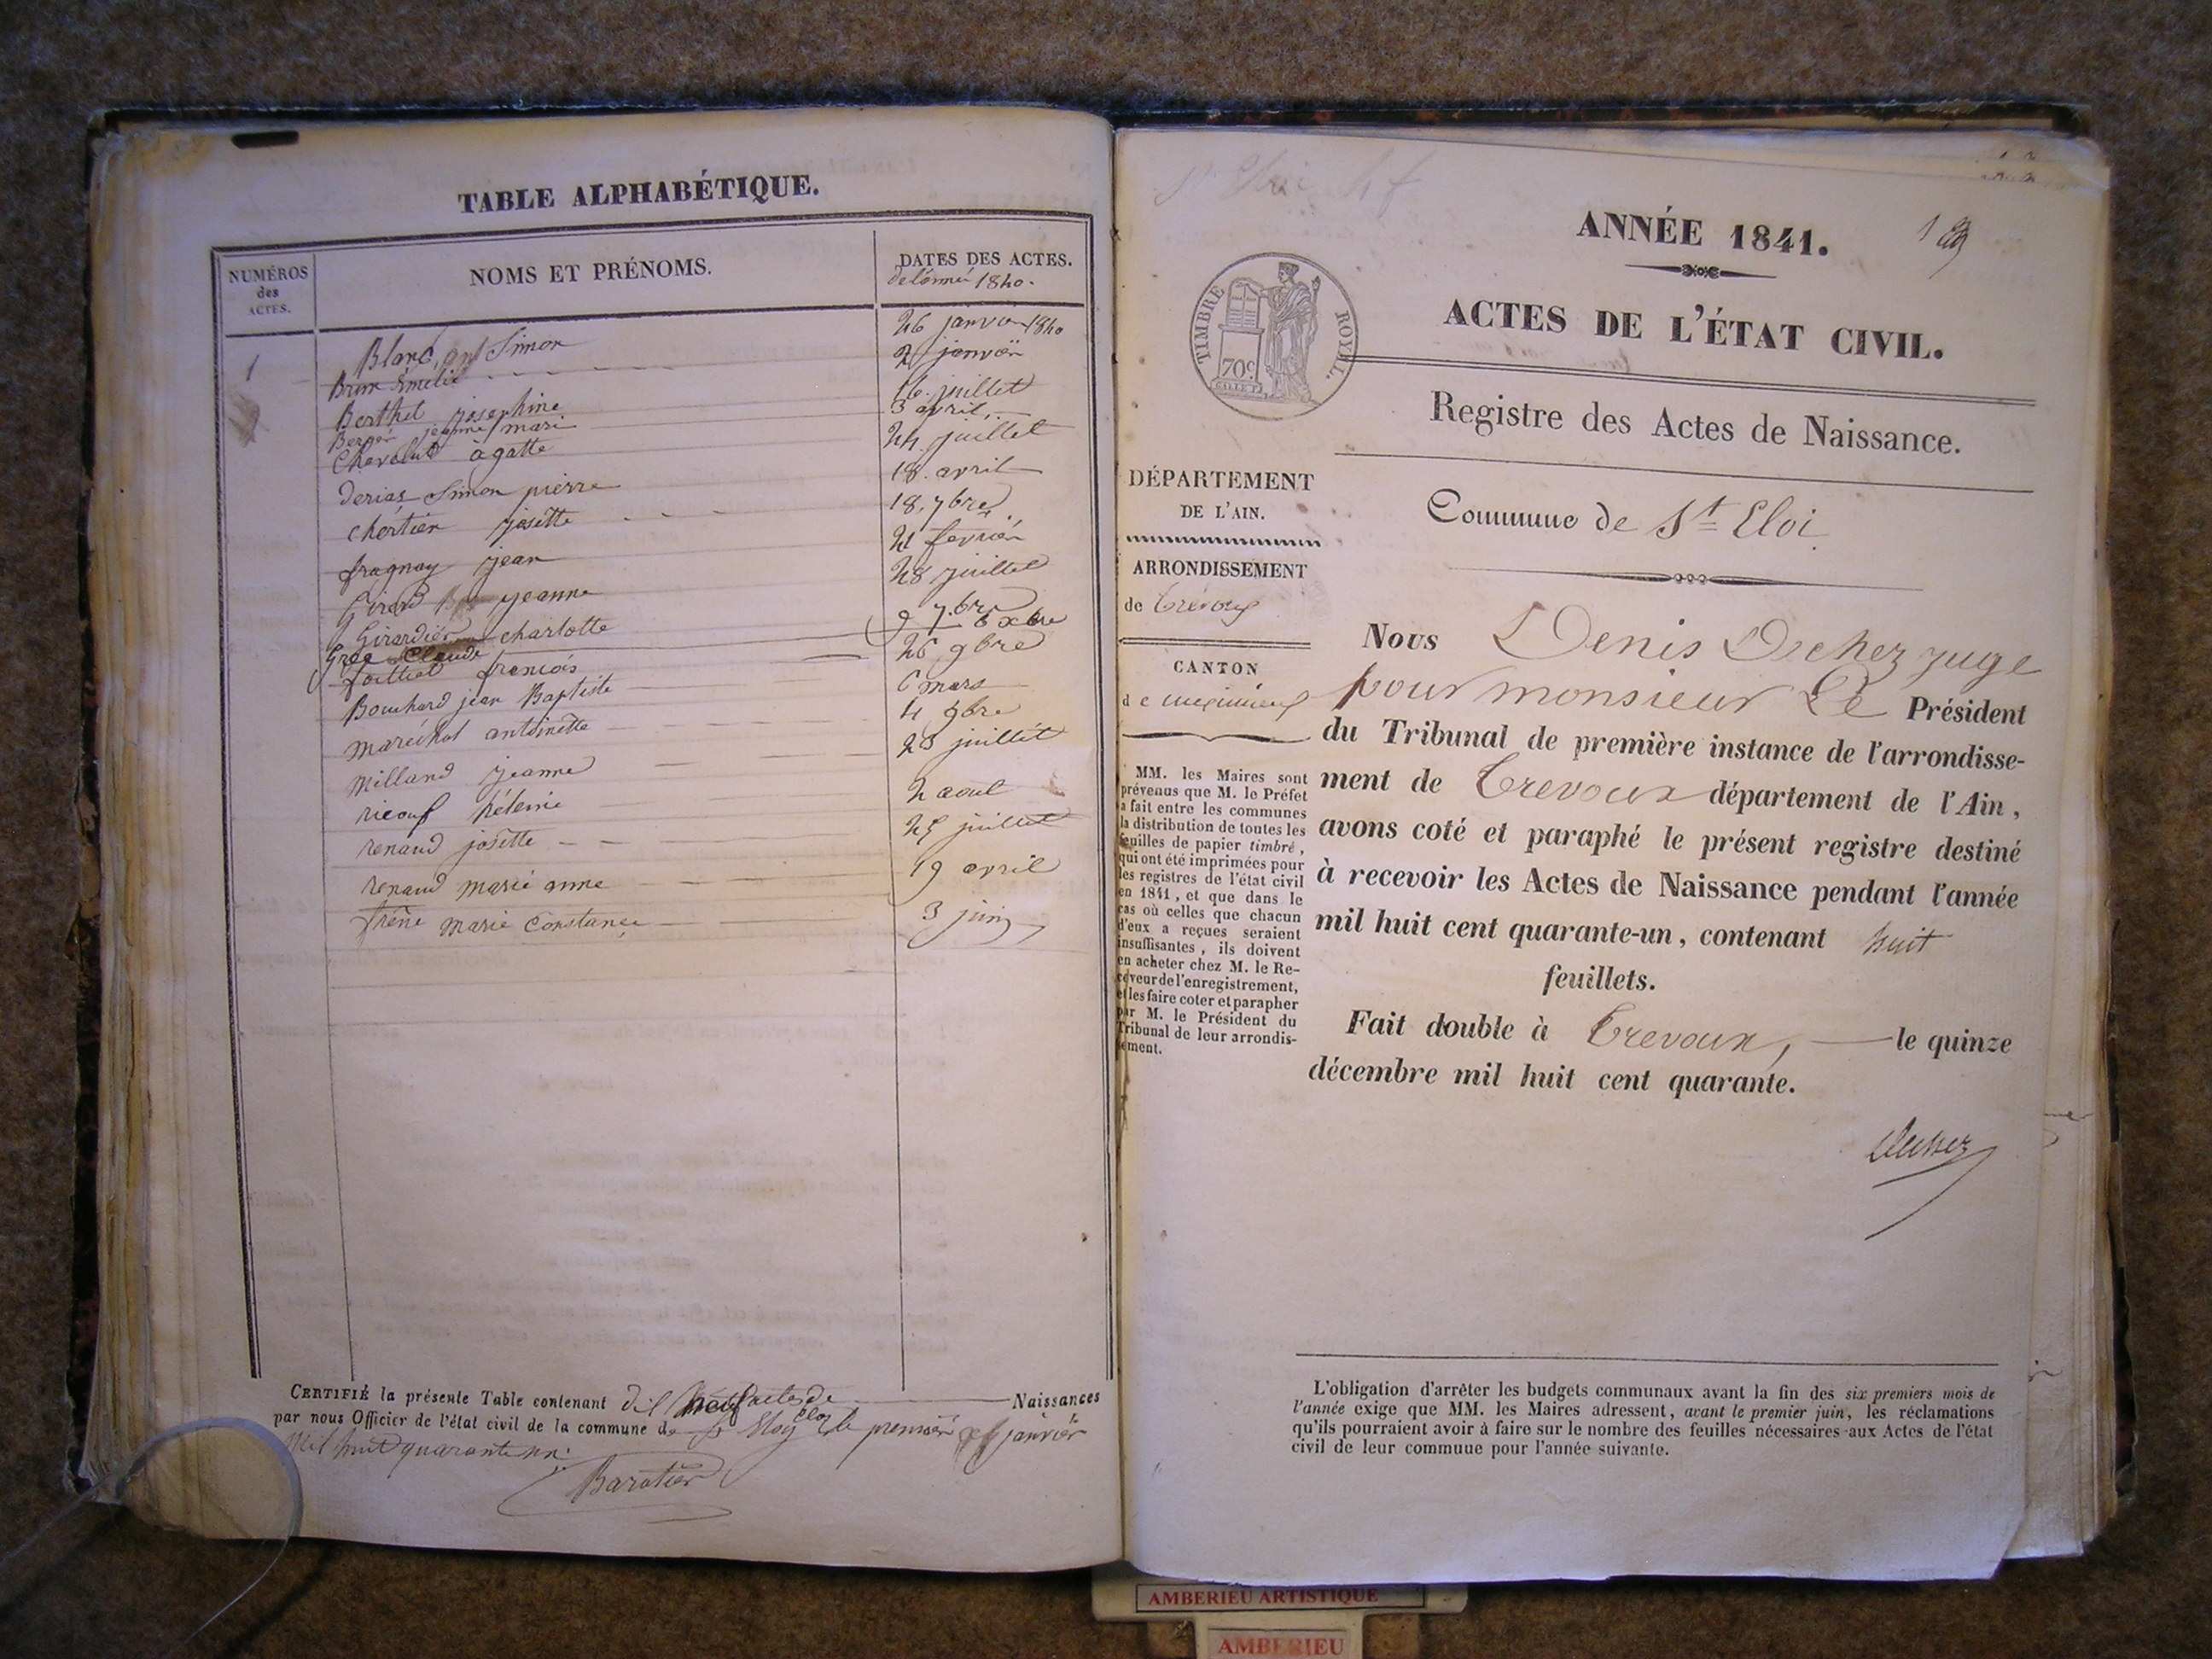 TABLE ALPHABÉTIQUE.
NUMÉROS
des
ACTES.
NOMS ET PRÉNOMS.
DATES DES ACTES.
de l'année 1840.
1 Blanc, Simon 26 janvier 1840
Brun Émelie 2 janvier
Berthet josephine 16 juillet
Berger jeanne mari 3 avril
Chevolut àgatte 24 juillet
derias Simon pierre 18 avril
chértien josette 18, 7bre
fragnay jean 21 fevrier
Girard jeanne 28 juillet
Girardier charlotte 9 7bre
Gros Claude 6 xbre
francois 26 9bre
Bouchard jean Baptiste 6 mars
maréchal antoinette 4 9bre
Milland jeanne 28 juillet
ricouf 2 aout
renaud josette 25 juillet
renaud marie anne 19 avril
frêne marie Constance 3 juin
CERTIFIÉ la présente Table contenant dix neuf actes de Naissances
par nous Officier de l'état civil de la commune de St Eloy le premier janvier
Mil huit quarante un.
Baratier
ANNÉE 1841.
ACTES DE L'ÉTAT CIVIL.
TIMBRE ROYAL.
70c.
Registre des Actes de Naissance.
DÉPARTEMENT
DE L'AIN.
ARRONDISSEMENT
de Trévoux
CANTON
de meximieux
MM. les Maires sont
prévenus que M. le Préfet
a fait entre les communes
la distribution de toutes les
feuilles de papier timbré,
qui ont été imprimées pour
les registres de l'état civil
en 1841, et que dans le
cas où celles que chacun
d'eux a reçues seraient
insuffisantes, ils doivent
en acheter chez M. le Re-
ceveur de l'enregistrement,
et les faire coter et parapher
par M. le Président du
Tribunal de leur arrondis-
sement.
Commune de St Eloi
Nous Denis Dechez juge
pour monsieur Le Président
du Tribunal de première instance de l'arrondisse-
ment de Trevoux département de l'Ain,
avons coté et paraphé le présent registre destiné
à recevoir les Actes de Naissance pendant l'année
mil huit cent quarante-un, contenant huit
feuillets.
Fait double à Trevoux, le quinze
décembre mil huit cent quarante.
Dechez
L'obligation d'arrêter les budgets communaux avant la fin des six premiers mois de
l'année exige que MM. les Maires adressent, avant le premier juin, les réclamations
qu'ils pourraient avoir à faire sur le nombre des feuilles nécessaires aux Actes de l'état
civil de leur commune pour l'année suivante.
AMBERIEU ARTISTIQUE
AMBERIEU